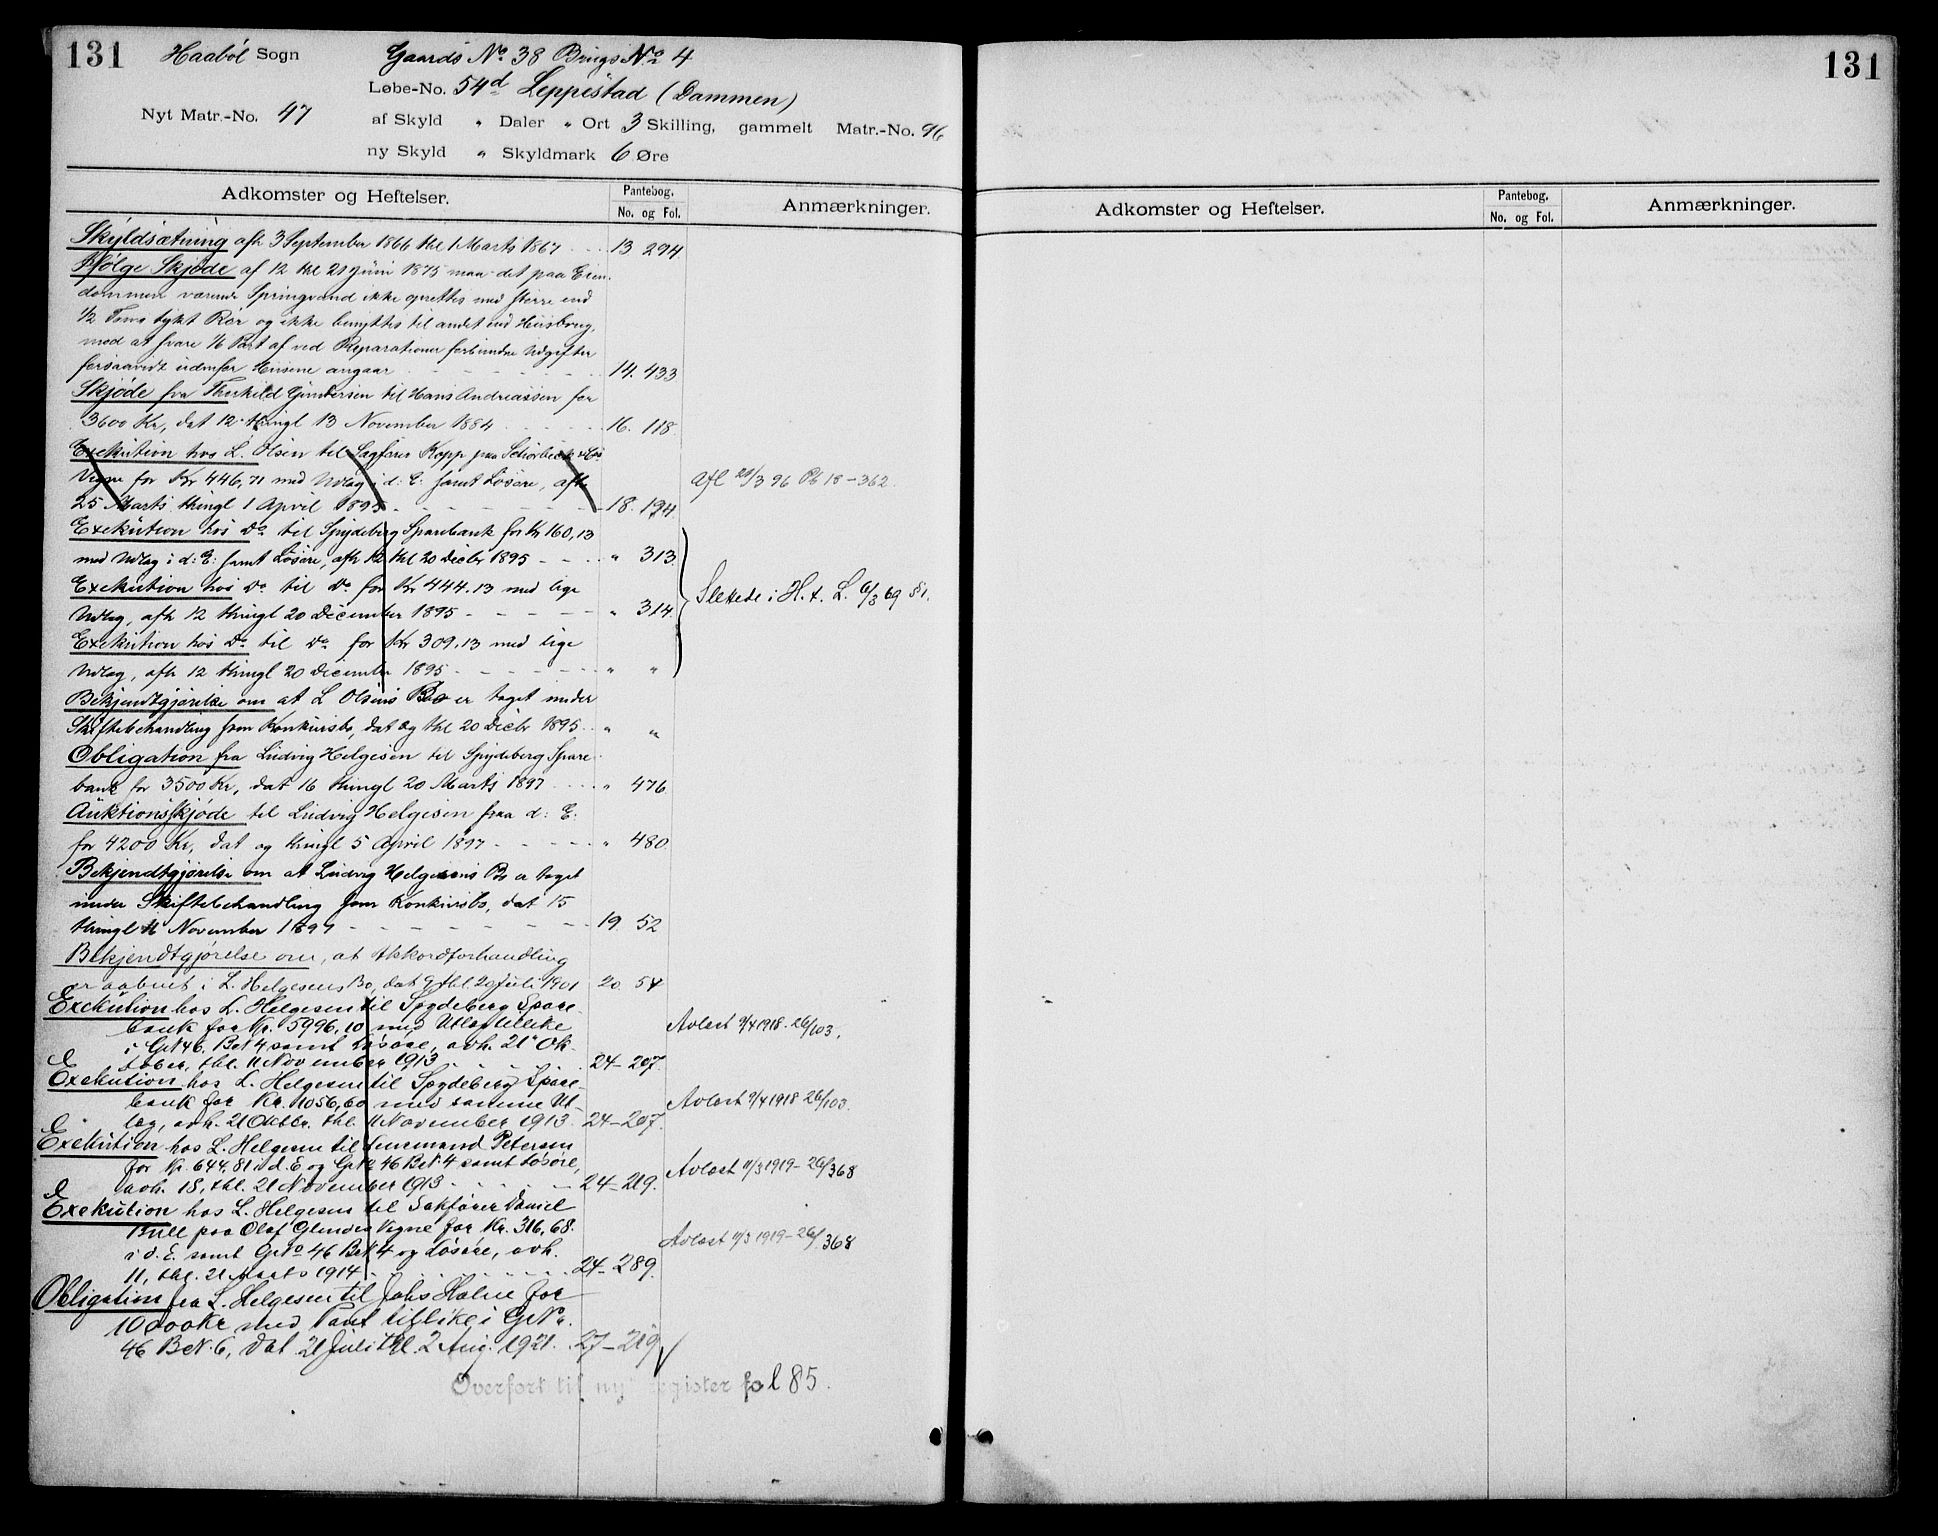 131
Haabøl Sogn
Gaards No. 38 Brugs No. 4
Løbe-No. 54d Leppestad (Dammen)
Nyt Matr.-No. 47
af Skyld " Daler " Ort 3 Skilling, gammelt Matr.-No. 96
ny Skyld " Skyldmark 6 Øre
Adkomster og Heftelser.
Pantebog.
No. og Fol.
Anmærkninger.
Skyldsætning afh 3 September 1866 thl 1 Marts 1867 13 294
Ifølge Skjøde af 12 thl 21 Juni 1875 maa det paa Eien
dommen værende Springvand ikke oprettes med større end
1/2 Toms tykt Rør og ikke benyttes til andet end Husbrug,
mod at svare 1/6 Part af ved Reparationer forbundne Udgifter
forsaavidt udenfor Husene angaar 14. 433
Skjøde fra Thorkild Gundersen til Hans Andreassen for
3600 Kr, dat 12 thingl 13 November 1884 16. 118
Exekution hos L. Olsen til Sagfører Kopp paa Vegne for Kr 446,71 med Udlæg i d: E. samt Løsøre, afh
25 Marts thingl 1 April 1895 18. 194
Afl 21/3 96 Pb 18-362
Exekution hos Do til Spydeberg Sparebank for Kr 160,13
med Udlæg i d: E: samt Løsøre, afh 12 thl 20 Decbr 1895 " 313.
Exekution hos Do til Do for Kr 444.13 med lige
Udlæg, afh 12 thingl 20 December 1895 " 314.
Slettede i H. t. L. 6/3 69 § 1.
Exekution hos Do til Do for Kr 309.13 med lige
Udlæg, afh 12 thingl 20 December 1895 " "
Bekjendtgjørelse om at L Olsens Bo er taget under
Skiftebehandling som Konkursbo, dat og thl 20 Decbr 1895 " "
Obligation fra Ludvig Helgesen til Spydeberg Spare
bank for 3500 Kr, dat 16 thingl 20 Marts 1897 " 476
Auktionsskjøde til Ludvig Helgesen paa d: E:
for 4200 Kr, dat og thingl 5 April 1897 " 480.
Bekjendtgjørelse om at Ludvig Helgesens Bo er taget
under Skiftebehandling som Konkursbo, dat 15
thingl November 1897 19 52
Bekjendtgjørelse om, at Akkordforhandling
er aabnet i L. Helgesens Bo, dat 9 thl 20 Juli 1901 20. 54
Exekution hos L. Helgesen til Spydeberg Spare-
bank for Kr. 5996,10 med Utlæg tillike
i G.No 46. B.No 4 samt Løsøre, avh. 21 Ok-
tober, thl. 11 November 1913 24-207.
Avlæst 9/4 1918. 26/103.
Exekution hos L. Helgesen til Spydeberg Spare-
bank for Kr. 1056,60 med samme Ut-
læg, avh. 21 Oktbr. thl. 11 November 1913 24-207.
Avlæst 9/4 1918 26/103.
Exekution hos L. Helgesen til Lensmand Petersen
for Kr. 644,81 i d. E og G.No 46 B.No 4 samt Løsøre,
avh. 18, thl. 21 November 1913 24-219.
Avlæst 11/3 1919-26/368
Exekution hos L. Helgesen til Sakfører Daniel
Bull paa Olaf Glenders Vegne for Kr. 316,68.
i d. E. samt G.No 46 B.No 4 og Løsøre, avh.
11, thl. 21 Marts 1914 24-289.
Avlæst 11/3 1919-26/368
Obligation fra L. Helgesen til Johs Holm for
10000 Kr med Pant tillike i G.No.
46 B.No. 6, dat 21 Juli thl. 2 Aug. 1921. 27-219
Overført til nyt register fol 85.
131
Adkomster og Heftelser.
Pantebog.
No. og Fol.
Anmærkninger.